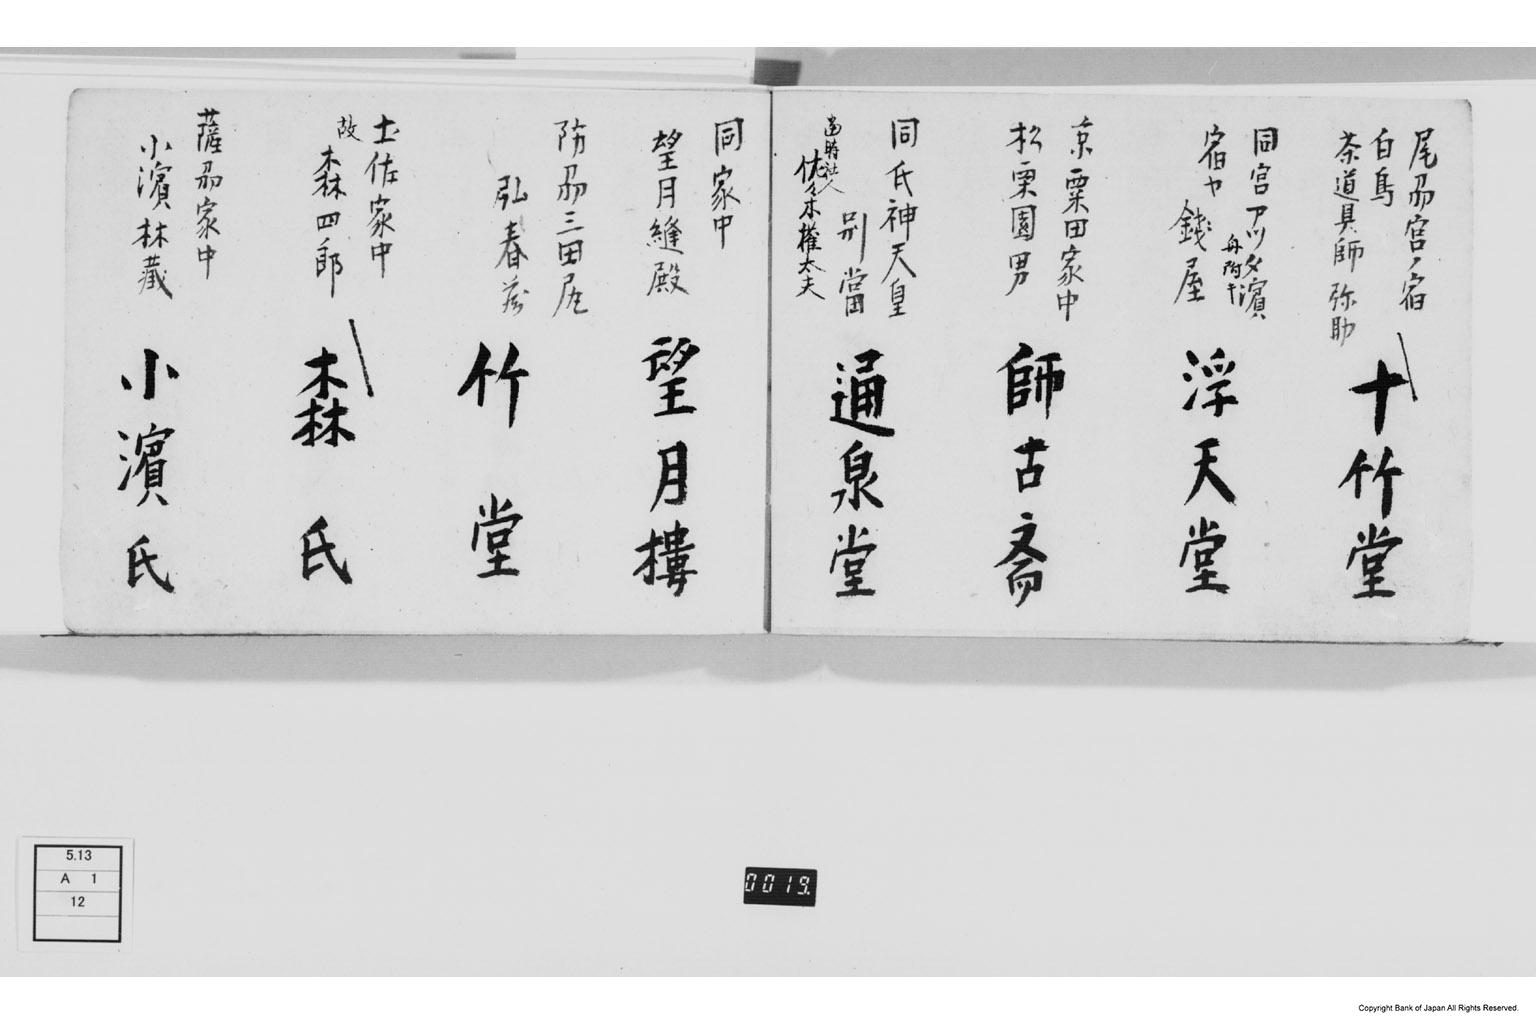 尾刕宮ノ宿
白鳥
茶道具師 弥助
十竹堂
同宮アツタ濱
舟附キ
宿ヤ 錢屋
浮天堂
京粟田家中
松栗園男
師古斎
同氏神天皇
別當
當時社人
佐々木權太夫
通泉堂
同家中
望月縫殿
望月樓
防刕三田尻
弘春
竹堂
土佐家中
故
森四郎
森氏
薩刕家中
小濱林藏
小濱氏
5.13
A 1
12
0019.
Copyright Bank of Japan All Rights Reserved.